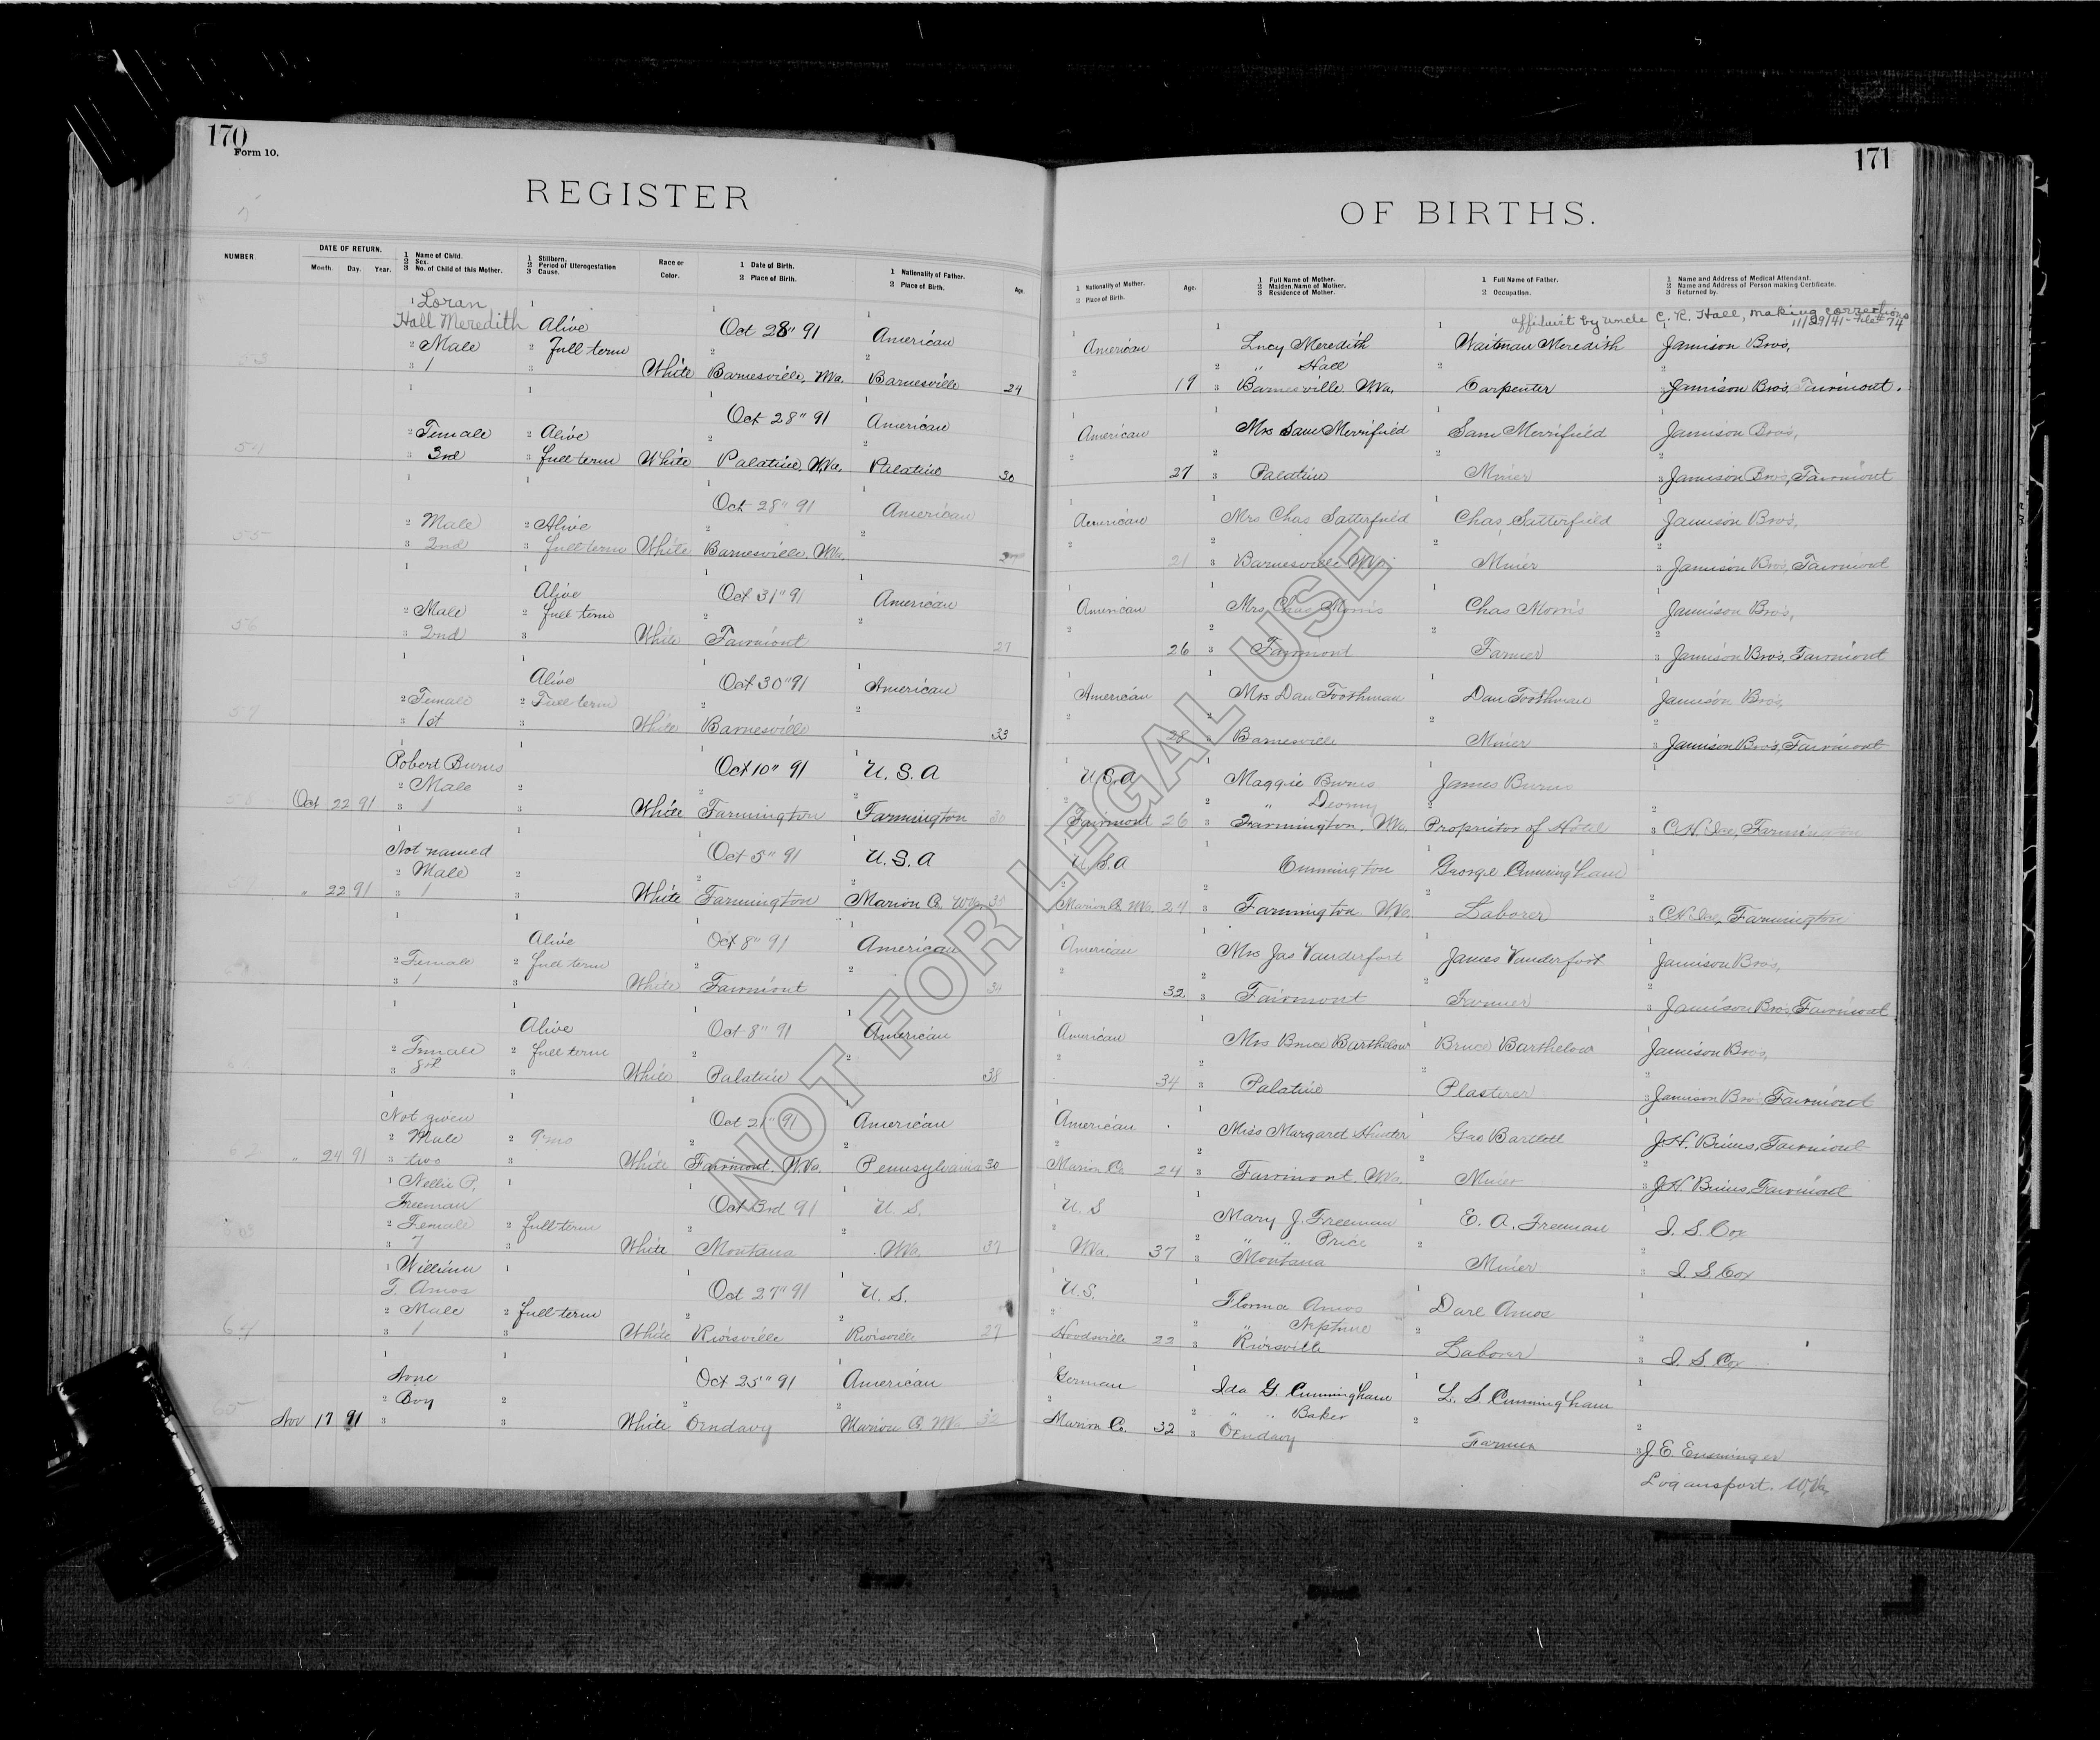 170
Form 10.
REGISTER
NUMBER.
DATE OF RETURN.
Month Day. Year.
1 Name of Child.
2 Sex.
3 No. of Child of this Mother.
1 Stillborn.
2 Period of Uterogestation
3 Cause.
Race or
Color.
1 Date of Birth.
2 Place of Birth.
1 Nationality of Father.
2 Place of Birth.
Age.
1 Loran
Hall Meredith Alive Oct 28" 91 American
2 Male 2 Full term
3 1 3 White Barnesville, W.Va. Barnesville 24
Oct 28" 91 American
54 2 Female 2 Alive
3 3rd 3 full term White Palatine, W.Va. Palatine 30
Oct 28" 91 American
55 2 Male 2 Alive
3 2nd 3 full term White Barnesville, W.Va.
Alive Oct 31" 91 American
56 2 Male 2 full term
3 2nd 3 White Fairmont 27
Alive Oct 30" 91 American
57 2 Female 2 Full term
3 1st 3 White Barnesville 33
Robert Burns Oct 10" 91 U. S. A
2 Male 2
Oct 22 91 3 1 3 White Farmington Farmington 30
Not named Oct 5" 91 U. S. A
2 Male 2
" 22 91 3 1 3 White Farmington Marion Co. W.Va.
Alive Oct 8" 91 American
2 Female 2 full term
3 1 3 White Fairmont
Alive Oct 8" 91 American
2 Female 2 full term
3 3 White Palatine 38
Not given Oct 21" 91 American
62 2 Male 2 9 mo
" 24 91 3 two 3 White Fairmont, W.Va. Pennsylvania 30
1 Nellie P.
Freeman Oct 3rd 91 U. S.
2 Female 2 full term
3 7 3 White Montana W.Va. 37
1 William
T. Amos Oct 27" 91 U. S.
64 2 Male 2 full term
3 1 3 White Riviesville Rivesville 27
None Oct 25" 91 American
65 2 Boy 2
Nov 17 91 3 3 White Oendavy Marion Co. W.Va. 32
171
OF BIRTHS.
1 Nationality of Mother.
2 Place of Birth.
Age.
1 Full Name of Mother.
2 Maiden Name of Mother.
3 Residence of Mother.
1 Full Name of Father.
2 Occupation.
1 Name and Address of Medical Attendant.
2 Name and Address of Person making Certificate.
3 Returned by.
affidavit by uncle C. R. Hall, making corrections
11/29/41 - File # 74
American Lucy Meredith Waitman Meredith Jamison Bros,
" Hall
19 3 Barnesville W.Va. Carpenter Jamison Bros. Fairmont.
American Mrs Sam Merrifield Sam Merrifield Jamison Bros,
27 3 Palatine Miner 3 Jamison Bros, Fairmont
American Mrs Chas Satterfield Chas Satterfield Jamison Bros,
21 3 Barnesville W.Va. Miner 3 Jamison Bros, Fairmont
American Mrs Chas Morris Chas Morris Jamison Bros,
26 3 Fairmont Farmer 3 Jamison Bros. Fairmont
American Mrs Dan Toothman Dan Toothman Jamison Bros,
28 3 Barnesville Miner 3 Jamison Bros, Fairmont
U. S. A Maggie Burns James Burns
Fairmont 26 3 Farmington, W.Va. Proprietor of Hotel 3 Farmington
U. S. A Cunnington George Cunningham
Marion Co. W.Va. 24 3 Farmington W.Va. Laborer 3 Farmington
American Mrs Jas Vanderfort James Vanderfort Jamison Bros,
32 3 Fairmont Farmer 3 Jamison Bros, Fairmont
American Mrs Bruce Barthelow Bruce Barthelow Jamison Bros,
34 3 Palatine Plasterer 3 Jamison Bros Fairmont
American Miss Margaret Hunter Geo Bartlett J.H. Brins, Fairmont
Marion Co. 24 3 Fairmont W.Va. Miner 3 J.H. Brins, Fairmont
U. S Mary J. Freeman E. A. Freeman I. S. Cox
" " Price
W.Va. 37 3 Montana Miner 3 I. S. Cox
U. S. Florina Amos Dare Amos
" Neptune
Hoodsville 22 3 Rivesville Laborer 3 I. S. Cox
German Ida G. Cunningham L. S. Cunningham
" " Baker
Marion Co. 32 3 Oendavy Farmer 3 J. E. Ensminger
Logansport. W.Va,
NOT FOR LEGAL USE